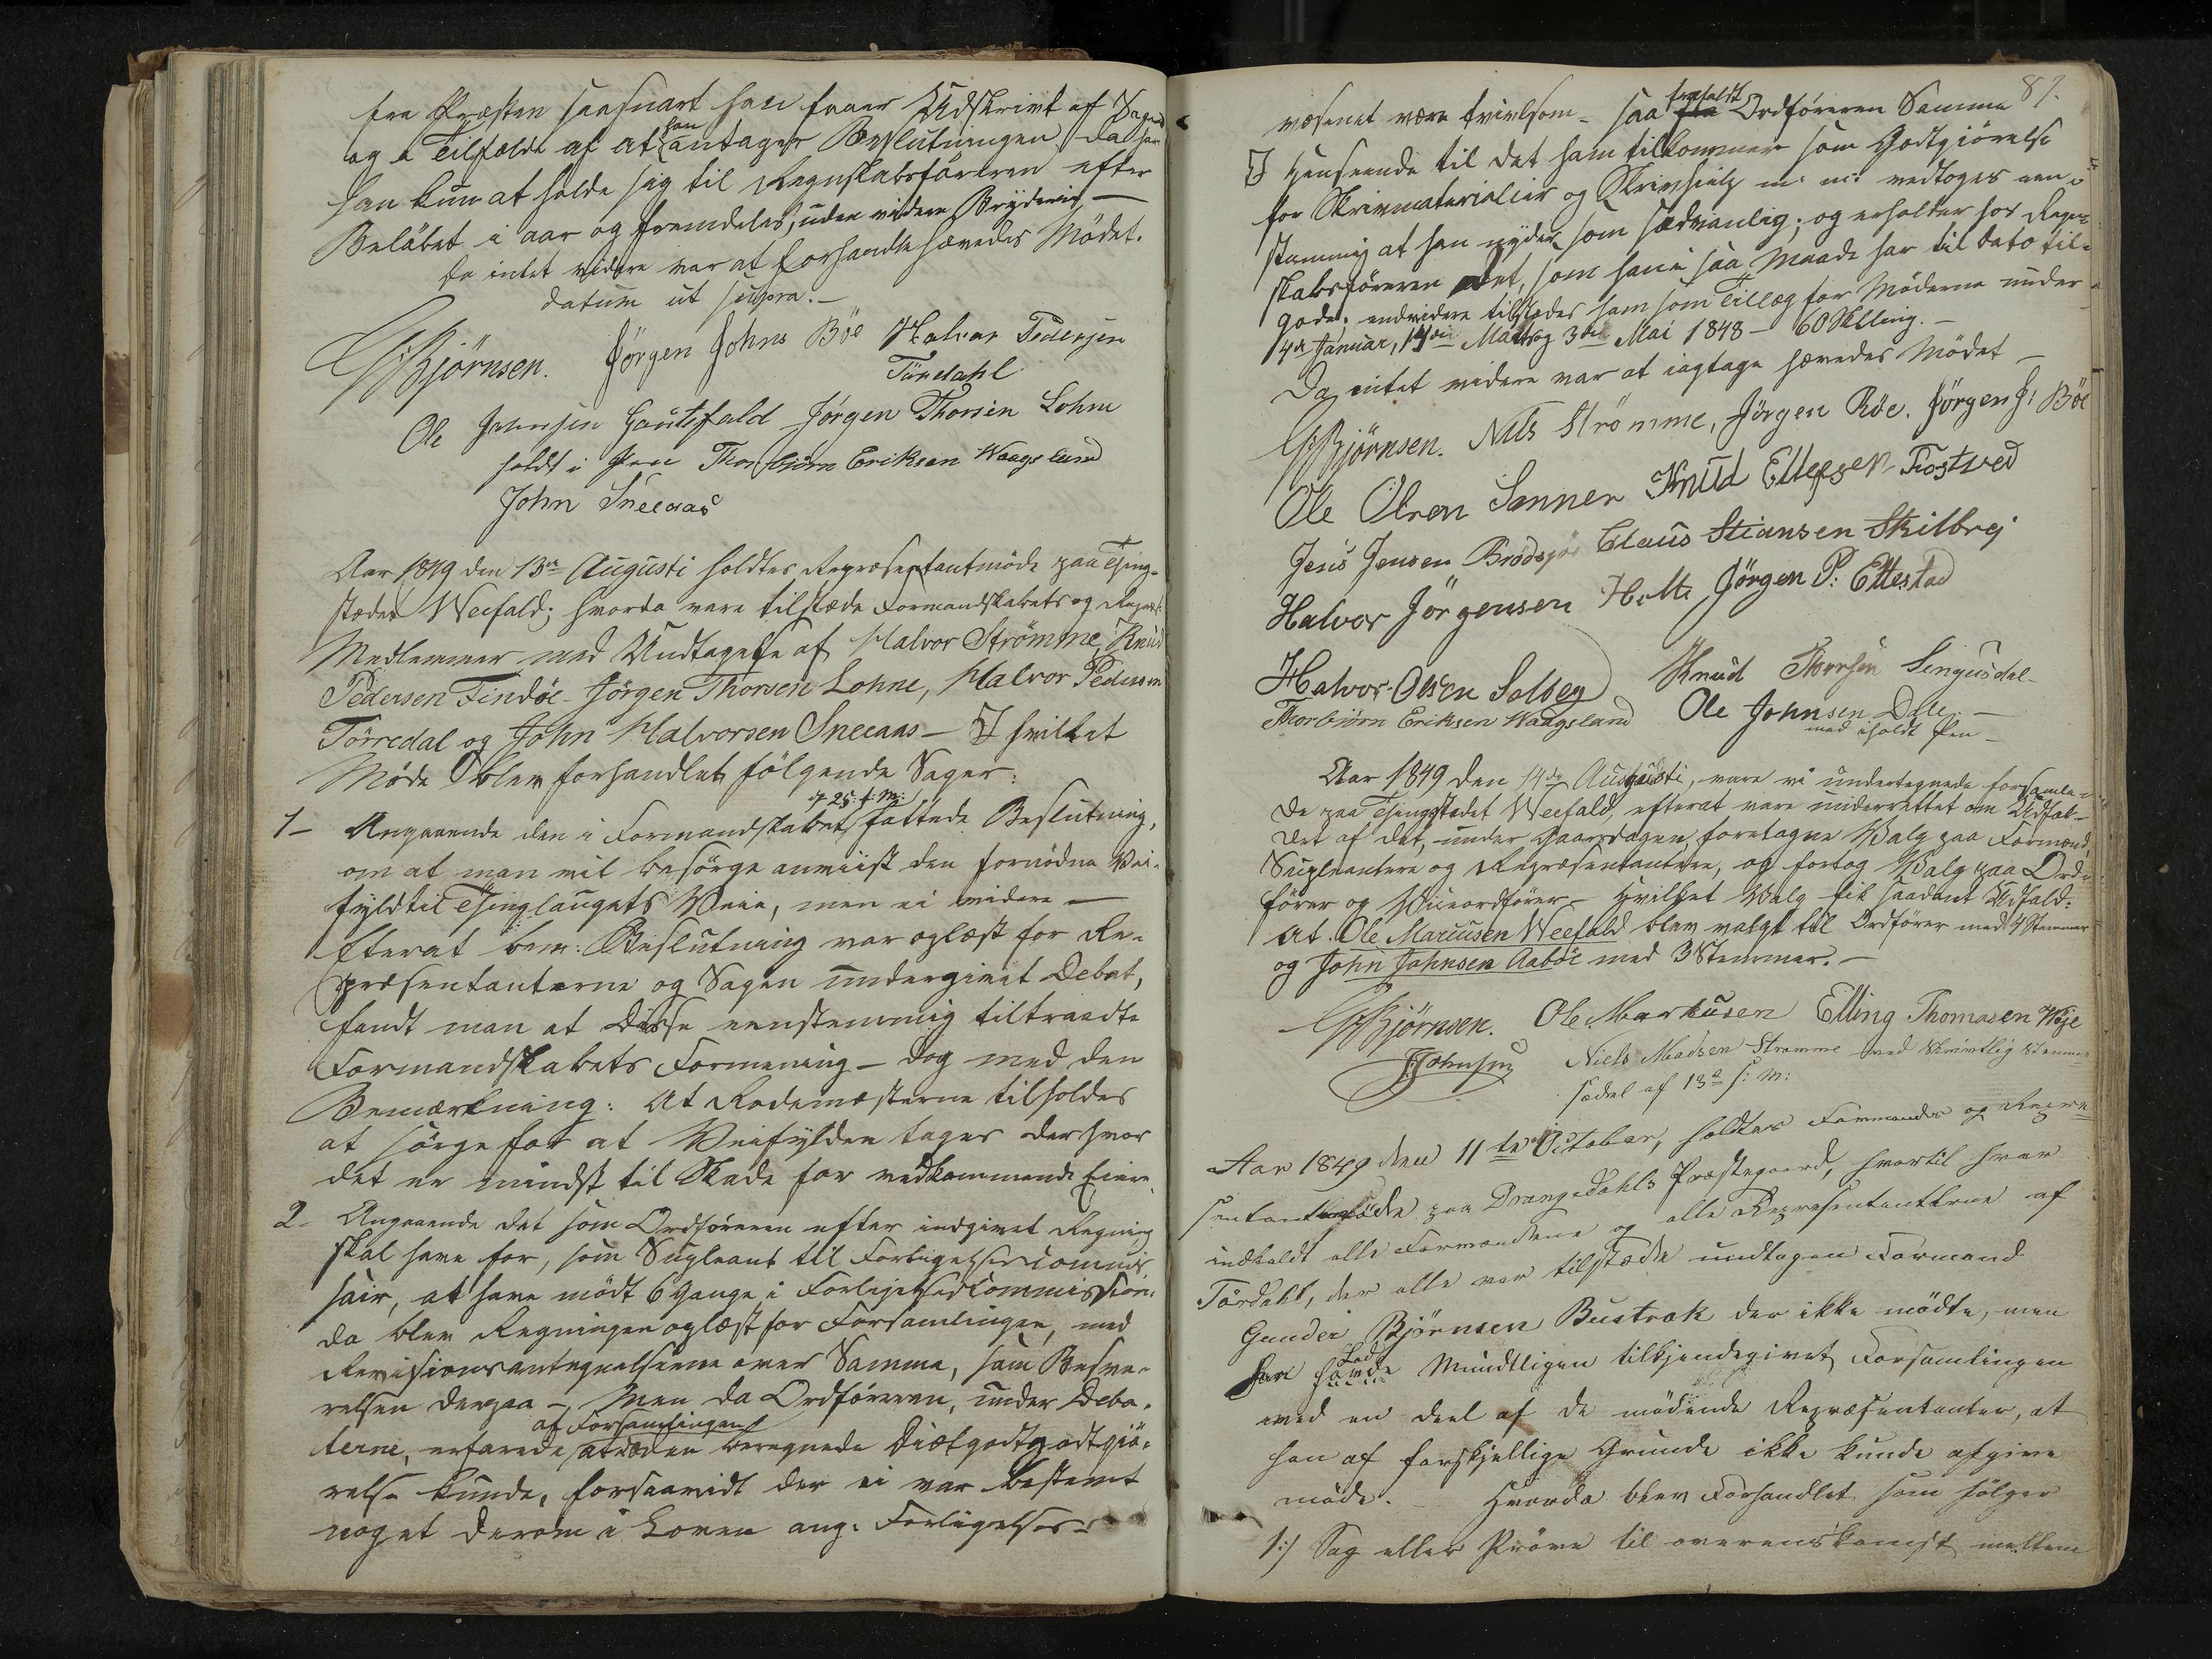 fra Præsten saasnart han faaer Udskrivt af Sagen
og i Tilfælde af at han antager Beslutningen, da har
han kun at holde sig til Regnskabsföreren efter
Belöbet i aar og fremdeles, uden videre Bryderie —
Da intet videre var at forhandle hævedes Mödet.
datum ut supra. —
GBjörnsen. Jörgen Johns Böe Halvor Pedersen
Türedahl
Ole Johnsen Gautefald Jörgen Thorsen Lohne
holdt i Pen Thorbjörn Eriksen Waagsland
John Sneeaas
Aar 1849 den 13de Augusti holdtes Repræsentantmöde paa Thing-
stædet Weefald; hvorda vare tilstæde Formandskabets og Repræs:
Medlemmer med Undtagelse af Halvor Strömme, Knud
Pedersen Findöe - Jörgen Thorsen Lohne, Halvor Pedersen
Törredal og John Halvorsen Sneeaas — I hvilket
Möde blev forhandlet fölgende Sager:
1 - Angaaende den i Formandskabet d 25: f: M: fattede Beslutning,
om at man vil besörge anviist den fornödne Vei-
fyld til Thinglaugets Veie, men ei videre —
Efterat bem: Beslutning var oplæst for Re-
præsentanterne og Sagen undergivet Debat,
fandt man at Disse eenstemmig tiltraadte
Formandskabets Formening — dog med den
Bemærkning: At Rodemesterne tilholdes
at sörge for at Veifylden tages der hvor
det er mindst til Skade for vedkommende Eiere.
2 - Angaaende det som Ordföreren efter indgivet Regning
skal have for, som Supleant til Forligelsescommis
sair, at have mödt 6 Gange i Forligelsescommission.
da blev Regningen oplæst for Forsamlingen, med
Revisionsantegnelserne over Samme, som Besva-
relsen derpaa —, Men da Ordföreren, under Deba-
terne, erfarede af Forsamlingen at den beregnede Diætgodtgodtgiö-
relse kunde, forsaavidt der ei var bestemt
noget derom i Loven ang: Forligelses-
87.
væsenet være tvivlsom — saa frafaldt Ordföreren Samme
I Henseende til det ham tilkommer som Godtgiörelse
for Skrivmaterialier og Skrivhielp m: m: vedtoges een-
stemmig at han nyder som sædvanlig; og erholder hos Regn-
skabsföreren det, som han i saa Maade har til dato til-
gode. endvidere tilstodes ham som Tillæg for Möderne under
4de Januar, 14de Marts og 3de Mai 1848 — 60 Skilling. —
Da intet videre var at iagtage hævedes Mödet —
GBjörnsen. Nils Strömme, Jörgen Röe. Jörgen J: Böe
Ole Olsen Sanner Knud Ellefsen Tostved
Jens Jensen Brödsjöe Claus Stiansen Skilbrej
Halvor Jörgensen Holte Jörgen P: Ettestad
Halvor Olsen Solberg Knud Thorsen Lingusdal
Thorbjörn Eriksen Waagsland Ole Johnsen Dale —
med iholdt Pen —
Aar 1849 den 14de Augusti, vare vi undertegnede forsamle-
de paa Thingstedet Weefald, efterat være underrettet om Udfal-
det af det, under Gaarsdagen, foretagne Valg paa Formænd,
Supleantere og Repræsentantere, og foretog Valg paa Ord-
förer og Viceordförer — Hvilket Valg fik saadant Udfald:
at Ole Marcusen Weefald blev valgt til Ordförer med 4 Stemmer
og John Johnsen Aaböe med 3 Stemmer. —
GBjörnsen. Ole Markusen Elling Thomasen Woje
JJohnsen Niels Madsen Strømme ved Skrivtlig Stemme-
sedel af 13de s: M:
Aar 1849 den 11te October, holdtes Formands og Repræ-
sentantmöde paa Drangedahls Præstegaard, hvortil var
indkaldt alle Formændene og alle Repræsentanterne af
Tördahl, der alle var tilstæde undtagen Formand
Gunder Björnsen Bustrak der ikke mödte, men
han havde Mundtligen tilkjendegivet Forsamlingen
ved en deel af de mödende Repræsentanter, at
han af forskjellige Grunde ikke kunde afgive
möde. — Hvorda blev Forhandlet som fölger
1:/ Sag eller Pröve til overenskomst mellem